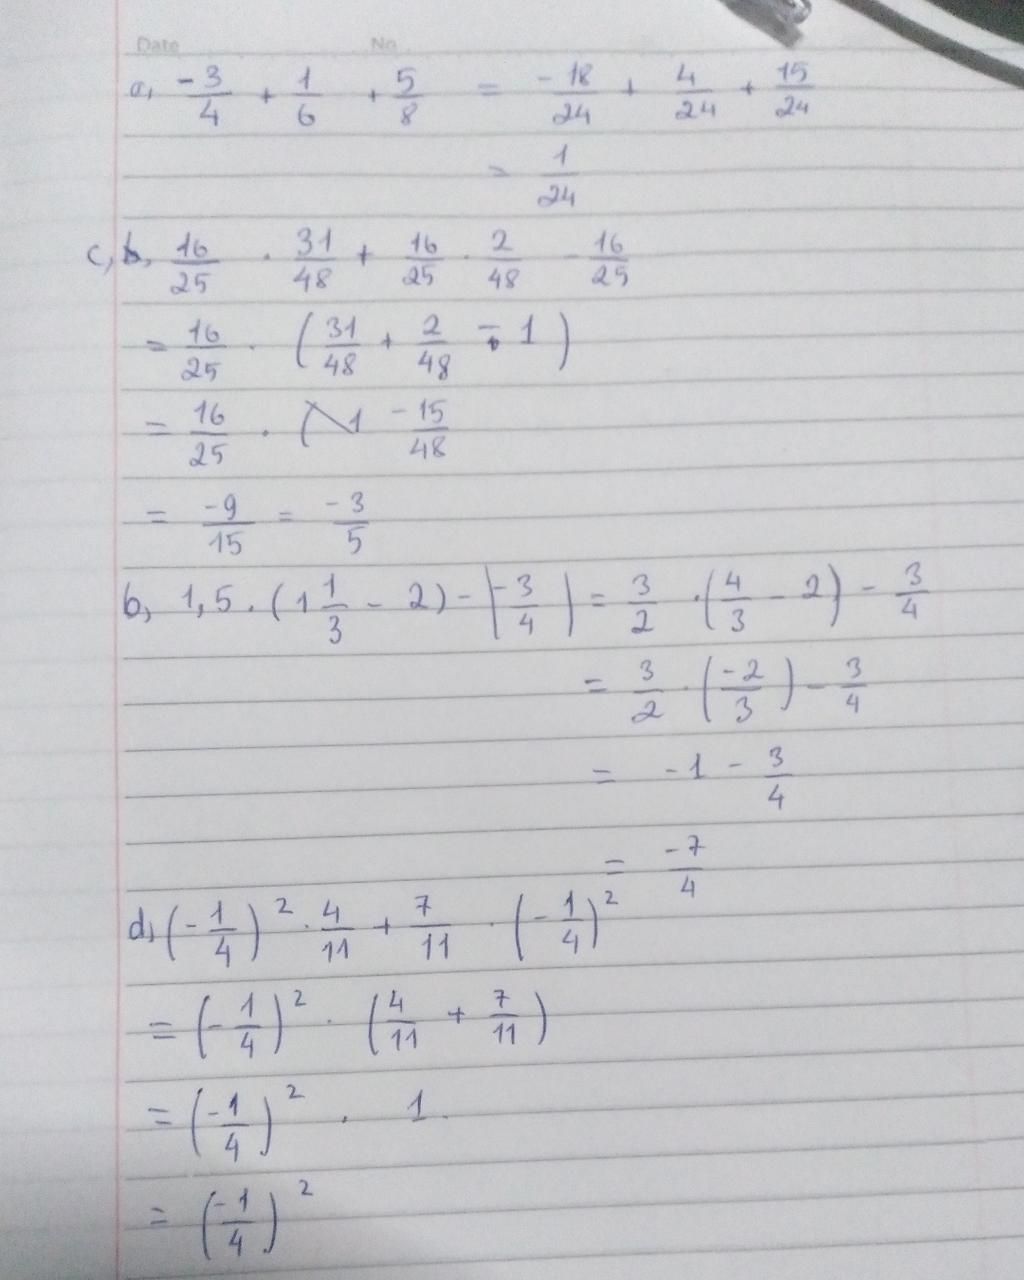 Date No
a, -3/4 + 1/6 + 5/8 = -18/24 + 4/24 + 15/24
= 1/24
c, 16/25 . 31/48 + 16/25 . 2/48 - 16/25
= 16/25 . (31/48 + 2/48 - 1)
= 16/25 . -15/48
= -9/15 = -3/5
b, 1,5 . (1 1/3 - 2) - |-3/4| = 3/2 . (4/3 - 2) - 3/4
= 3/2 . (-2/3) - 3/4
= -1 - 3/4
= -7/4
d, (-1/4)² . 4/11 + 7/11 . (-1/4)²
= (-1/4)² . (4/11 + 7/11)
= (-1/4)² . 1
= (-1/4)²